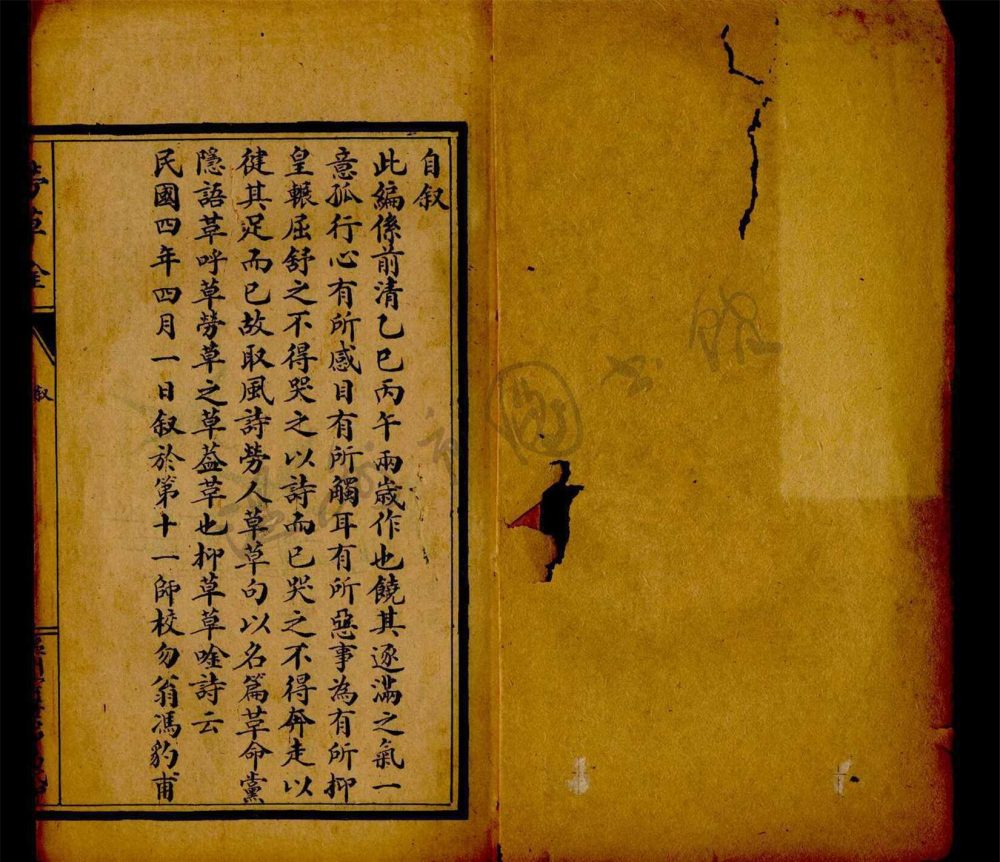 自叙
此編係前清乙巳丙午兩歲作也饒其逐滿之氣一
意孤行心有所感目有所觸耳有所惡事為有所抑
皇輾屈舒之不得哭之以詩而已哭之不得奔走以
徤其足而已故取風詩勞人草草句以名篇草命黨
隱語草呼草勞草之草葢草也抑草草唫詩云
民國四年四月一日叙於第十一師校勿翁馮豹甫
勞草唫
叙